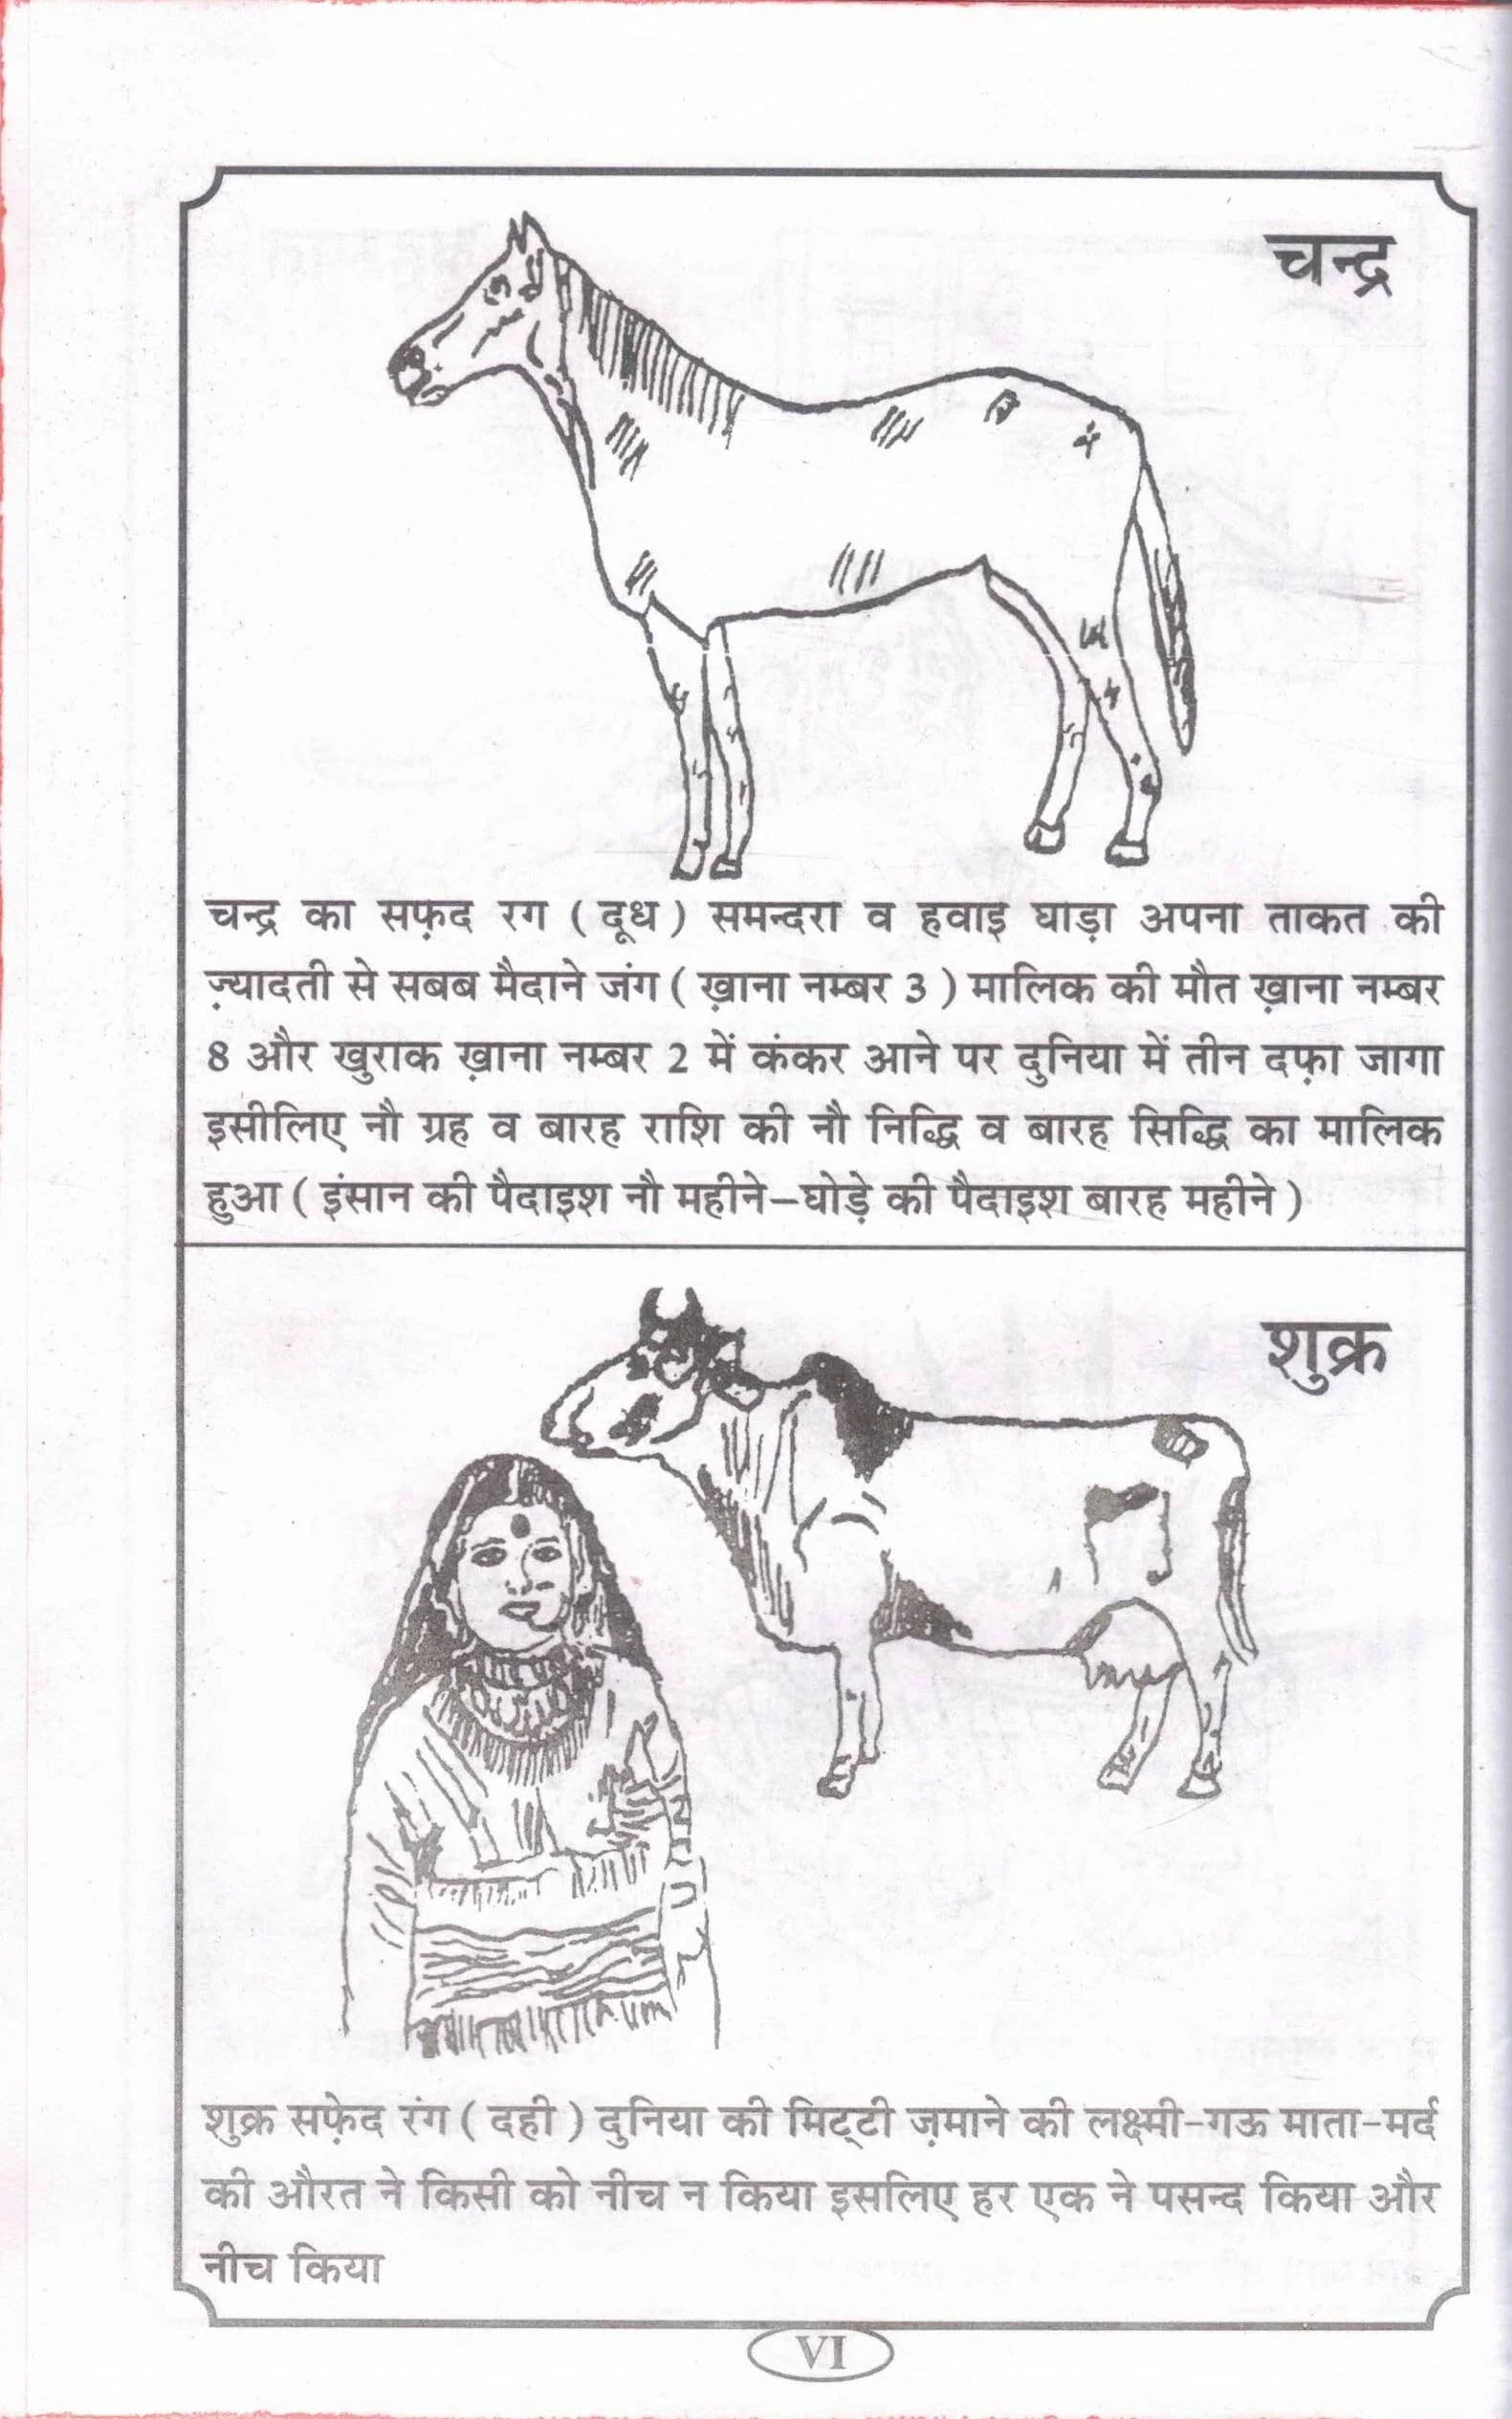 चन्द्र
चन्द्र का सफ़द रग ( दूध ) समन्दरा व हवाइ घाड़ा अपना ताकत की
ज़्यादती से सबब मैदाने जंग ( ख़ाना नम्बर 3 ) मालिक की मौत ख़ाना नम्बर
8 और खुराक ख़ाना नम्बर 2 में कंकर आने पर दुनिया में तीन दफ़ा जागा
इसीलिए नौ ग्रह व बारह राशि की नौ निद्धि व बारह सिद्धि का मालिक
हुआ ( इंसान की पैदाइश नौ महीने–घोड़े की पैदाइश बारह महीने )
शुक्र
शुक्र सफ़ेद रंग ( दही ) दुनिया की मिट्टी ज़माने की लक्ष्मी-गऊ माता-मर्द
की औरत ने किसी को नीच न किया इसलिए हर एक ने पसन्द किया और
नीच किया
VI